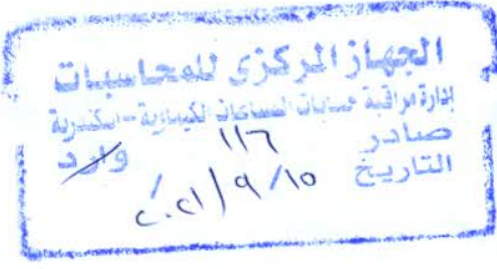 الجهاز المركزى للمحاسبات
إدارة مراقبة حسابات الصناعات الكيماوية - اسكندرية
صادر ١١٦ وارد
التاريخ ١٥ / ٩ / ٢٠٢١